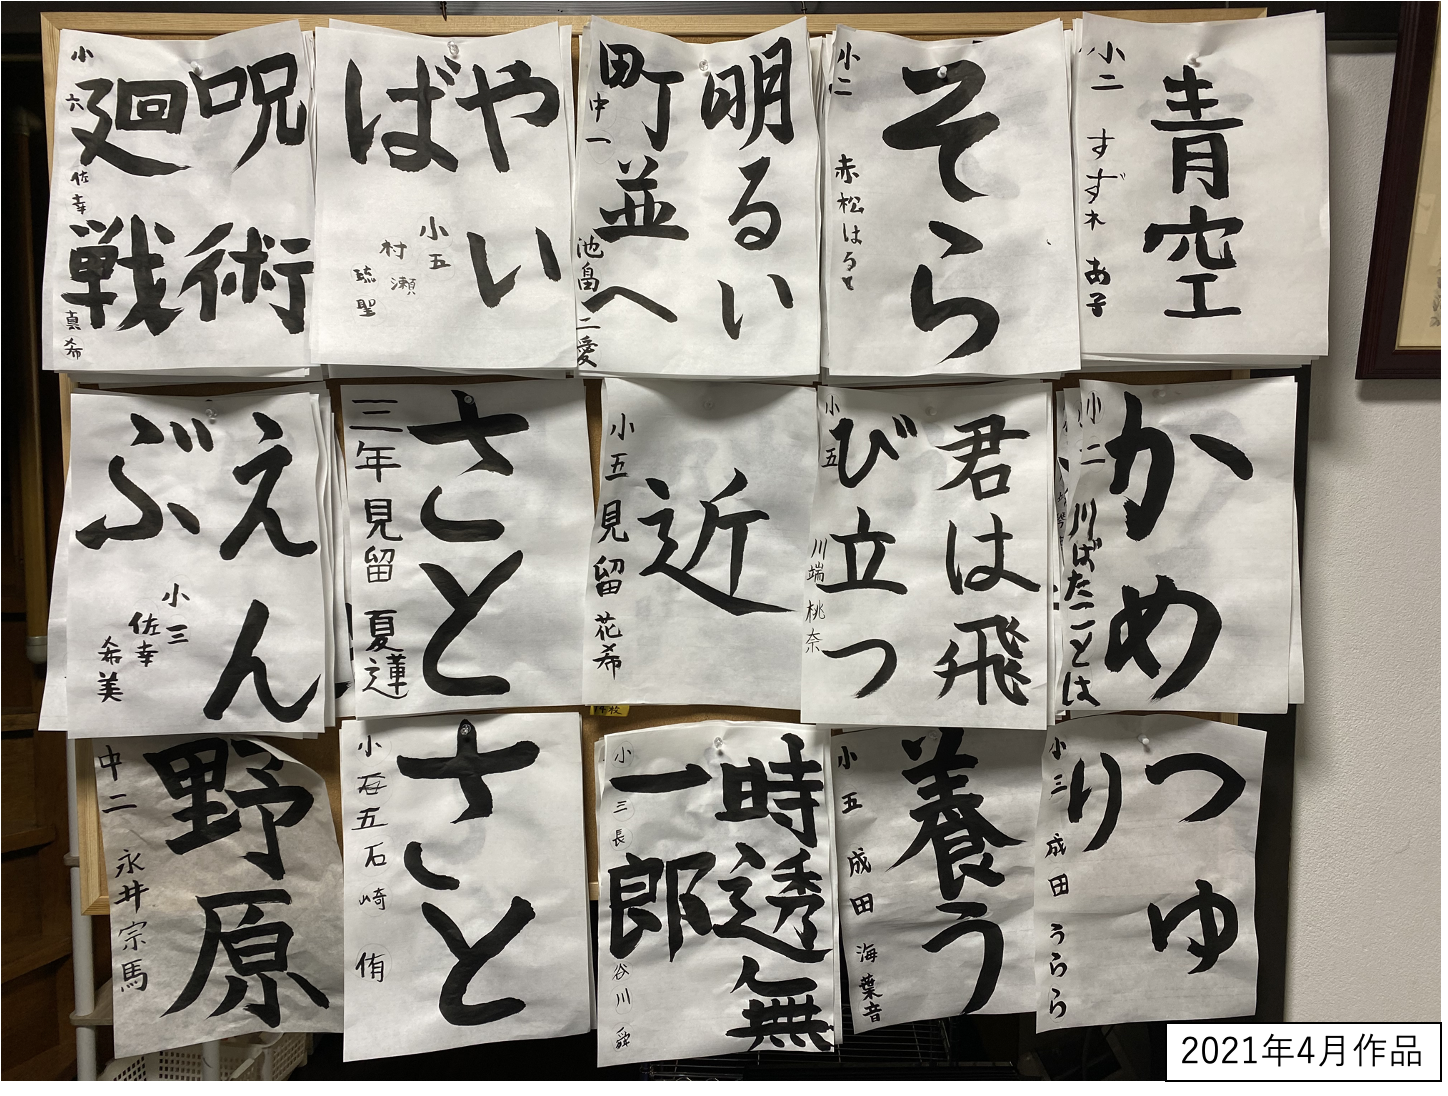 青空
小二 すずれ あ子
そら
小二 赤松はると
明るい
町並へ
中一 池畠 二愛
やい
ばい
小五
村瀬
琉聖
呪術
廻戦
小六 佐幸 真希
かめ
小二 川ばたことは
君は飛
び立つ
小五 川端桃奈
近
小五 見留 花希
さと
三年 見留 夏蓮
えん
ぶ
小三
佐幸
希美
つゆ
り
小三 成田 うらら
養う
小五 成田 海葉音
時透無
一郎
小三 長谷川 舜
さと
小五 石崎 侑
野原
中二 永井宗馬
年校
2021年4月作品